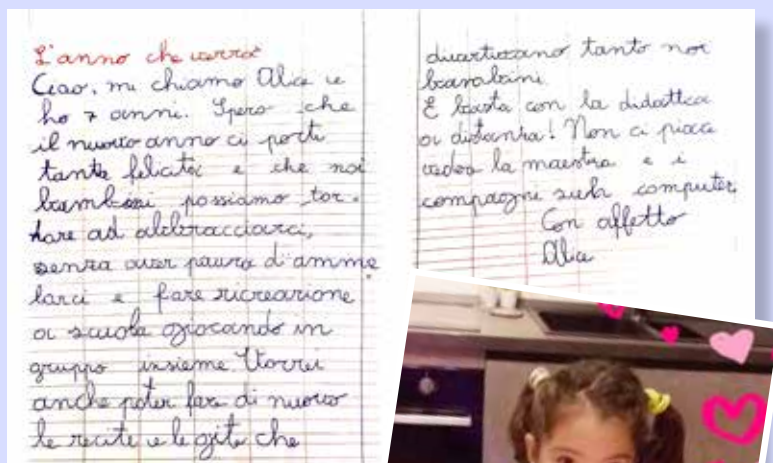 L'anno che verrà
Ciao, mi chiamo Alice e
ho 7 anni. Spero che
il nuovo anno ci porti
tanta felicità e che noi
bambini possiamo tor-
nare ad abbracciarci,
senza aver paura d'amma
larci e fare ricreazione
a scuola giocando in
gruppo insieme Vorrei
anche poter fare di nuovo
le recite e le gite che
divertivano tanto noi
bambini.
E basta con la didattica
a distanza! Non ci piace
veder la maestra e i
compagni sul computer
Con affetto
Alice